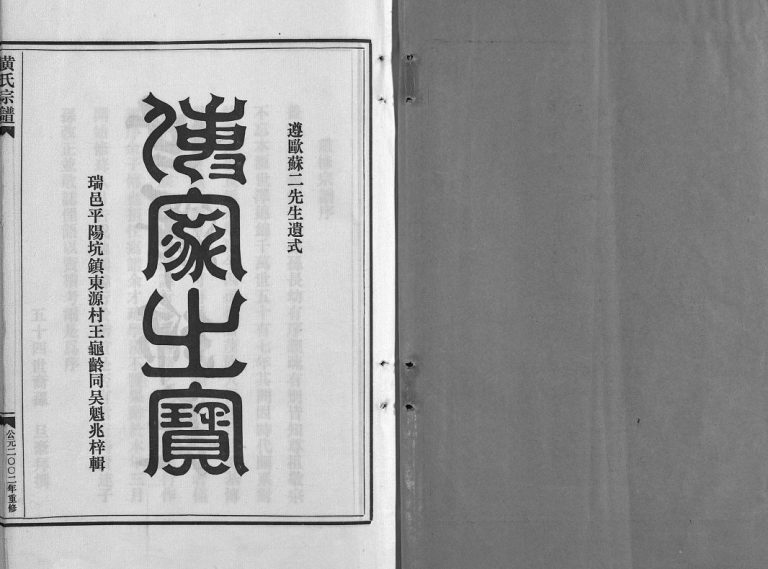 遵歐蘇二先生遺式
傳家之寶
瑞邑平陽坑鎮東源村王龜齡同吴魁兆梓輯
黃氏宗譜
公元二〇〇二年重修